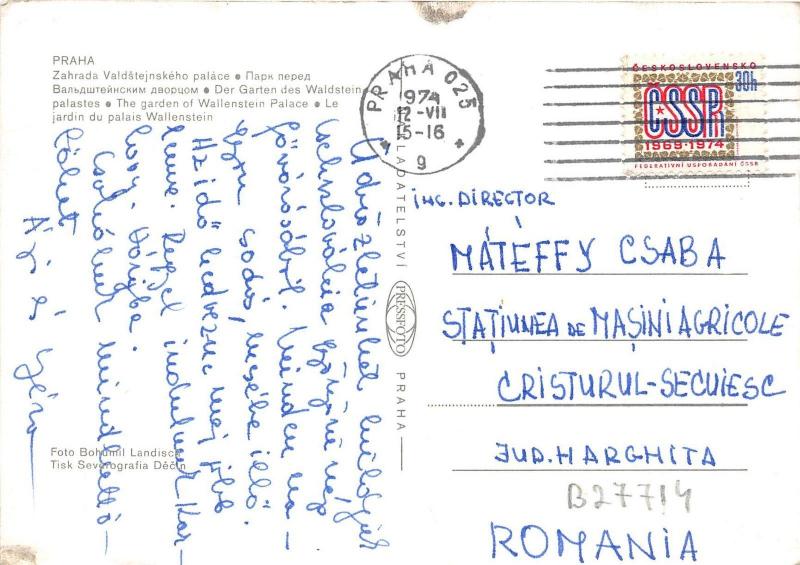 PRAHA
Zahrada Valdštejnského paláce • Парк перед
Вальдштейнским дворцом • Der Garten des Waldstein-
palastes • The garden of Wallenstein Palace • Le
jardin du palais Wallenstein
Foto Bohumil Landisch
Tisk Severografia Děčín
NAKLADATELSTVÍ PRESSFOTO PRAHA
PRAHA 025
1974
12-VII
15-16
9
ČESKOSLOVENSKO
30h
ČSSR
1969·1974
FEDERATIVNÍ USPOŘÁDÁNÍ ČSSR
Üdvözletünket küldjük
Csehszlovákia gyönyörű
fővárosából. Minden
csodás, mesébe illő.
Az idő kedvez
Reggel indulunk Kar-
lovy-Váryba.
Csókolunk mindkettő-
töket
ING. DIRECTOR
MÁTÉFFY CSABA
STAŢIUNEA DE MAŞINI AGRICOLE
CRISTURUL-SECUIESC
JUD. HARGHITA
B27714
ROMANIA